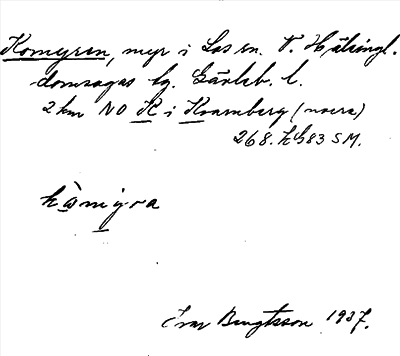 Komyren, myr i Los sn. V. Hälsingl.
domsagas tg. Gävleb. l.
2 km NO K i Kvarnberg (norra)
268. HG83 SM.
kòmýra
Ivar Bengtsson 1937.